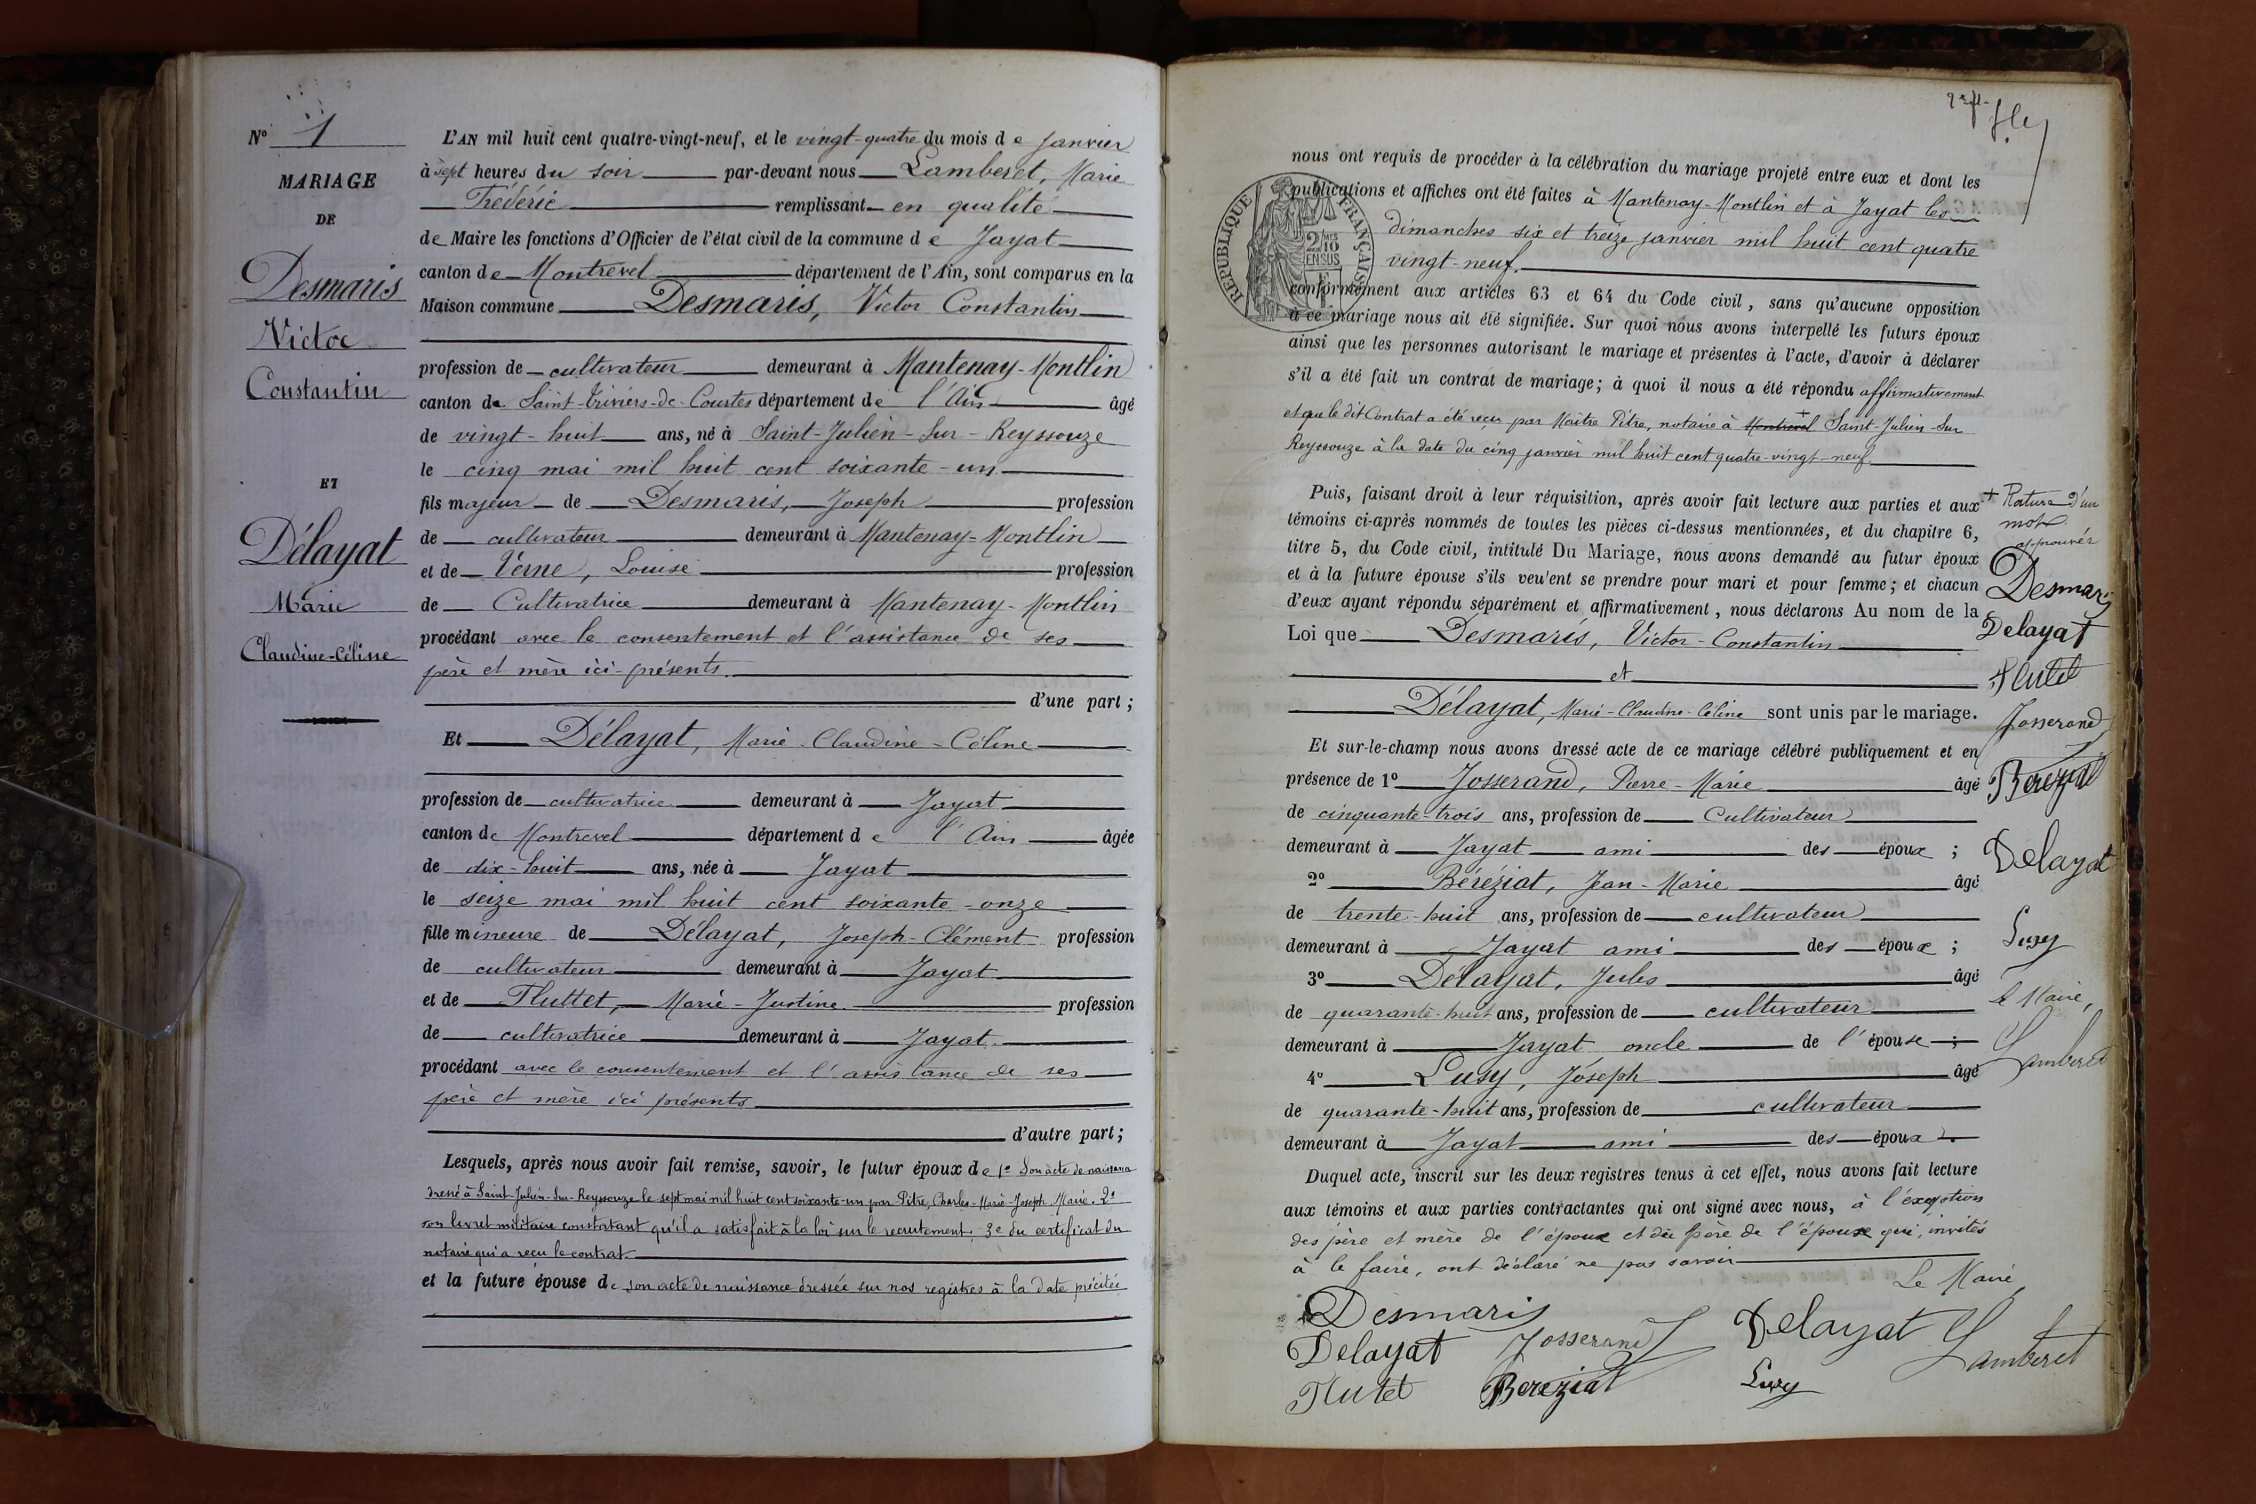 N° 1
MARIAGE
DE
Desmaris
Victor
Constantin
ET
Délayat
Marie
Claudine-Céline
L'AN mil huit cent quatre-vingt-neuf, et le vingt-quatre du mois de janvier
à sept heures du soir par-devant nous Lamberet, Marie
Frédéric remplissant en qualité
de Maire les fonctions d'Officier de l'état civil de la commune de Jayat
canton de Montrevel département de l'Ain, sont comparus en la
Maison commune Desmaris, Victor Constantin
profession de cultivateur demeurant à Mantenay-Montlin
canton de Saint-Triviers-de-Courtes département de l'Ain âgé
de vingt-huit ans, né à Saint-Julien-Sur-Reyssouze
le cinq mai mil huit cent soixante-un
fils majeur de Desmaris, Joseph profession
de cultivateur demeurant à Mantenay-Montlin
et de Verne, Louise profession
de Cultivatrice demeurant à Mantenay-Montlin
procédant avec le consentement et l'assistance de ses
père et mère ici présents.
d'une part ;
Et Délayat, Marie-Claudine-Céline
profession de cultivatrice demeurant à Jayat
canton de Montrevel département de l'Ain âgée
de dix-huit ans, née à Jayat
le seize mai mil huit cent soixante-onze
fille mineure de Délayat, Joseph-Clément profession
de cultivateur demeurant à Jayat
et de Fluttet, Marie-Justine profession
de cultivatrice demeurant à Jayat
procédant avec le consentement et l'assistance de ses
père et mère ici présents
d'autre part ;
Lesquels, après nous avoir fait remise, savoir, le futur époux de 1° Son acte de naissance
dressé à Saint-Julien-Sur-Reyssouze le sept mai mil huit cent soixante-un par Pitre, Charles-Marie-Joseph-Marie. 2°
son livret militaire constatant qu'il a satisfait à la loi sur le recrutement; 3° du certificat du
notaire qui a reçu le contrat.
et la future épouse de son acte de naissance dressée sur nos registres à la date précitée
nous ont requis de procéder à la célébration du mariage projeté entre eux et dont les
publications et affiches ont été faites à Mantenay-Montlin et à Jayat les
dimanches six et treize janvier mil huit cent quatre
vingt-neuf.
RÉPUBLIQUE FRANÇAISE
conformément aux articles 63 et 64 du Code civil, sans qu'aucune opposition
à ce mariage nous ait été signifiée. Sur quoi nous avons interpellé les futurs époux
ainsi que les personnes autorisant le mariage et présentes à l'acte, d'avoir à déclarer
s'il a été fait un contrat de mariage ; à quoi il nous a été répondu affirmativement
et que le dit Contrat a été reçu par Maître Pitre, notaire à + Montrevel Saint-Julien-Sur
Reyssouze à la date du cinq janvier mil huit cent quatre-vingt-neuf
Puis, faisant droit à leur réquisition, après avoir fait lecture aux parties et aux
témoins ci-après nommés de toutes les pièces ci-dessus mentionnées, et du chapitre 6,
titre 5, du Code civil, intitulé Du Mariage, nous avons demandé au futur époux
et à la future épouse s'ils veulent se prendre pour mari et pour femme ; et chacun
d'eux ayant répondu séparément et affirmativement, nous déclarons Au nom de la
Loi que Desmaris, Victor-Constantin
et
Délayat, Marie-Claudine-Céline sont unis par le mariage.
Et sur-le-champ nous avons dressé acte de ce mariage célébré publiquement et en
présence de 1° Josserand, Pierre-Marie âgé
de cinquante-trois ans, profession de Cultivateur
demeurant à Jayat ami des époux ;
2° Béréziat, Jean-Marie âgé
de trente-huit ans, profession de cultivateur
demeurant à Jayat ami des époux ;
3° Délayat, Jules âgé
de quarante-huit ans, profession de cultivateur
demeurant à Jayat oncle de l'épouse ;
4° Lusy, Joseph âgé
de quarante-huit ans, profession de cultivateur
demeurant à Jayat ami des époux.
Duquel acte, inscrit sur les deux registres tenus à cet effet, nous avons fait lecture
aux témoins et aux parties contractantes qui ont signé avec nous, à l'exception
des père et mère de l'époux et du père de l'épouse qui, invités
à le faire, ont déclaré ne pas savoir
Le Maire,
Desmaris
Delayat Josserand Delayat Lamberet
Flutet Bereziat Luzy
+ Rature d'un
mot
approuvée
Desmaris
Delayat
Flutet
Josserand
Bereziat
Delayat
Luzy
le Maire,
Lamberet